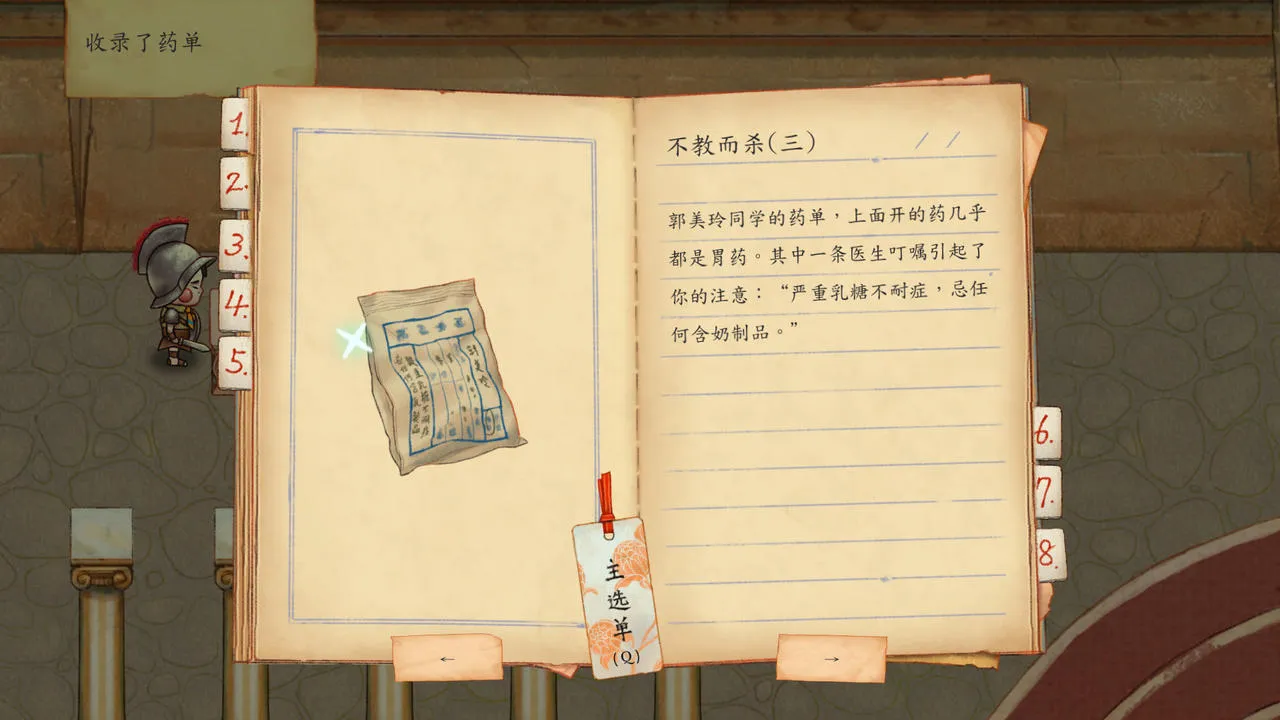 收录了药单
1.
2.
3.
4.
5.
不教而杀(三)
/ /
郭美玲同学的药单，上面开的药几乎
都是胃药。其中一条医生叮嘱引起了
你的注意：“严重乳糖不耐症，忌任
何含奶制品。”
6.
7.
8.
主选单
(Q)
←
→